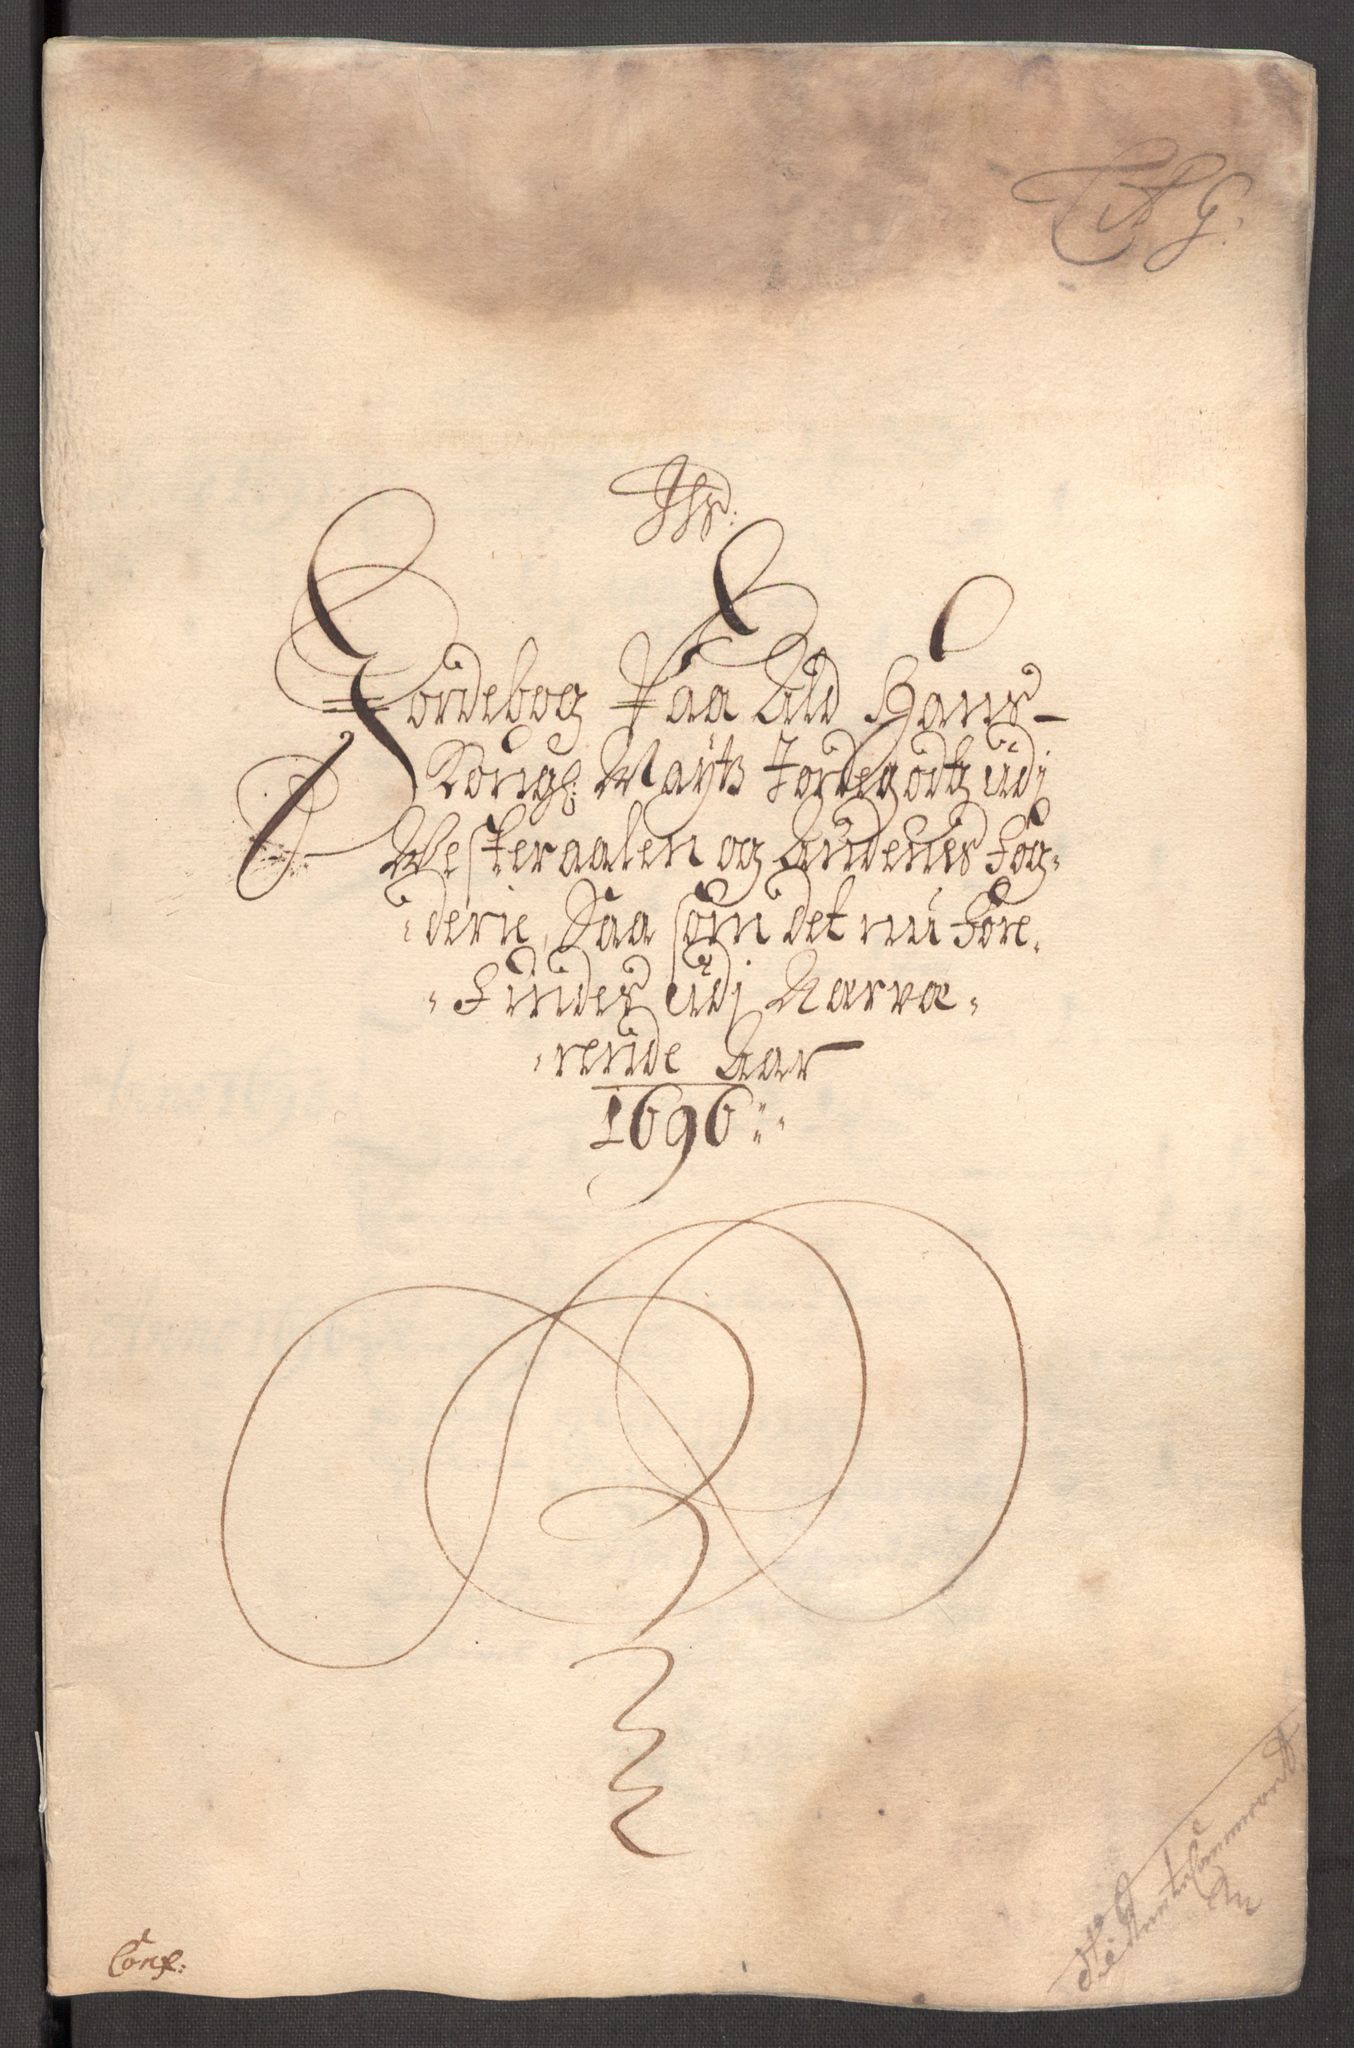 Jhs:
Jordebog Paa Ald Hans
Kongl: Mayts Jordegodtz udj
Westeraalen og Andenes fog-
derie, Saa som det nu fore-
findes udj Nærvæ-
rende Aar
1696
Conf: